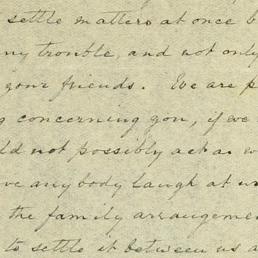 settle matters at once b
my trouble, and not only
your friends. We are p
g concerning you, if we
ld not possibly act as w
ve anybody laugh at us
the family arrangeme
to settle it between us a